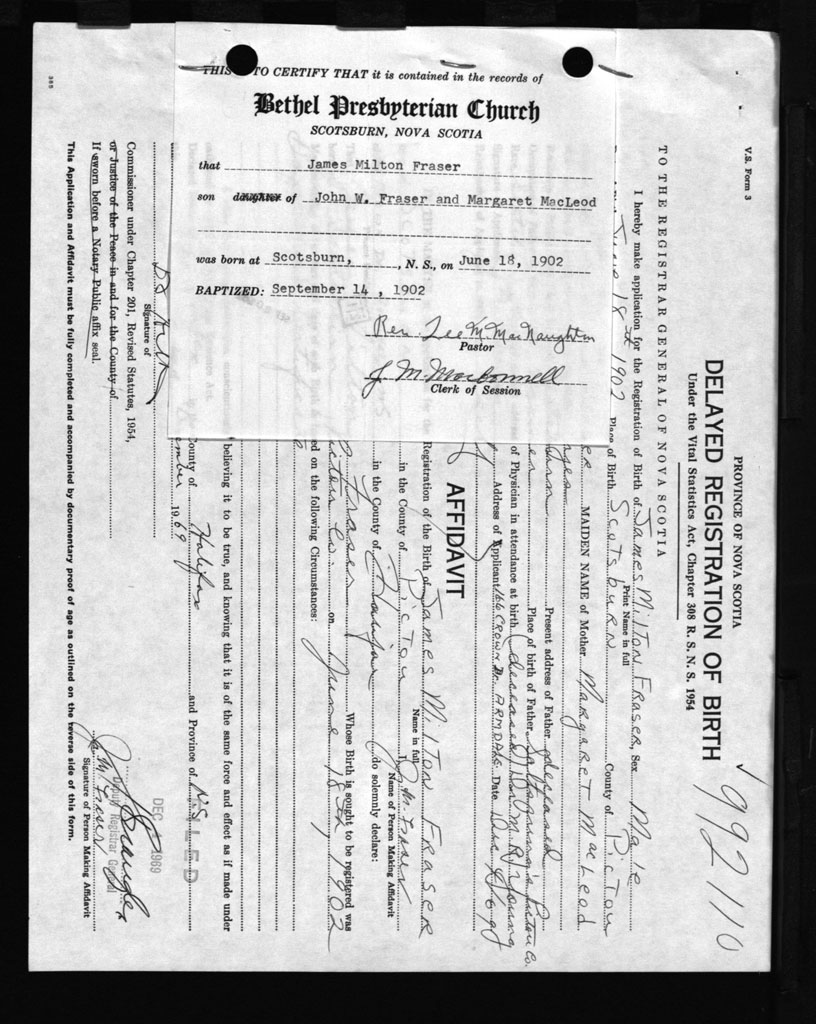 THIS TO CERTIFY THAT it is contained in the records of
Bethel Presbyterian Church
SCOTSBURN, NOVA SCOTIA
that James Milton Fraser
son daughter of John W. Fraser and Margaret MacLeod
was born at Scotsburn, , N. S., on June 18, 1902
BAPTIZED: September 14, 1902
Rev. Lee M. MacNaughton
Pastor
J. M. MacConnell
Clerk of Session
V.S. Form 3
PROVINCE OF NOVA SCOTIA
DELAYED REGISTRATION OF BIRTH
Under the Vital Statistics Act, Chapter 308 R. S. N. S. 1954
992110
TO THE REGISTRAR GENERAL OF NOVA SCOTIA
I hereby make application for the Registration of Birth of JAMES MILTON FRASER, Sex Male
Print Name in full
June 18th 1902 Place of Birth SCOTSBURN County of PICTOU
MAIDEN NAME of Mother MARGARET MacLEOD
Present address of Father deceased
Place of birth of Father Pictou Co.
of Physician in attendance at birth (deceased) Dr. M. R. Young
Address of Applicant 166 CROWN Dr. ARMDALE Date
AFFIDAVIT
Registration of the Birth of JAMES MILTON FRASER
Name in full
in the County of PICTOU I, J. M. Fraser
Name of Person Making Affidavit
in the County of Halifax do solemnly declare:
Fraser Whose Birth is sought to be registered was
Pictou Co. on June 18th, 1902
ed on the following Circumstances:
believing it to be true, and knowing that it is of the same force and effect as if made under
County of Halifax and Province of N.S.
ember 1969
FILED
DEC 1969
Deputy Registrar General
J. M. Fraser
Signature of Person Making Affidavit
Signature of
Commissioner under Chapter 201, Revised Statutes, 1954,
or Justice of the Peace in and for the County of
If sworn before a Notary Public affix seal.
This Application and Affidavit must be fully completed and accompanied by documentary proof of age as outlined on the reverse side of this form.